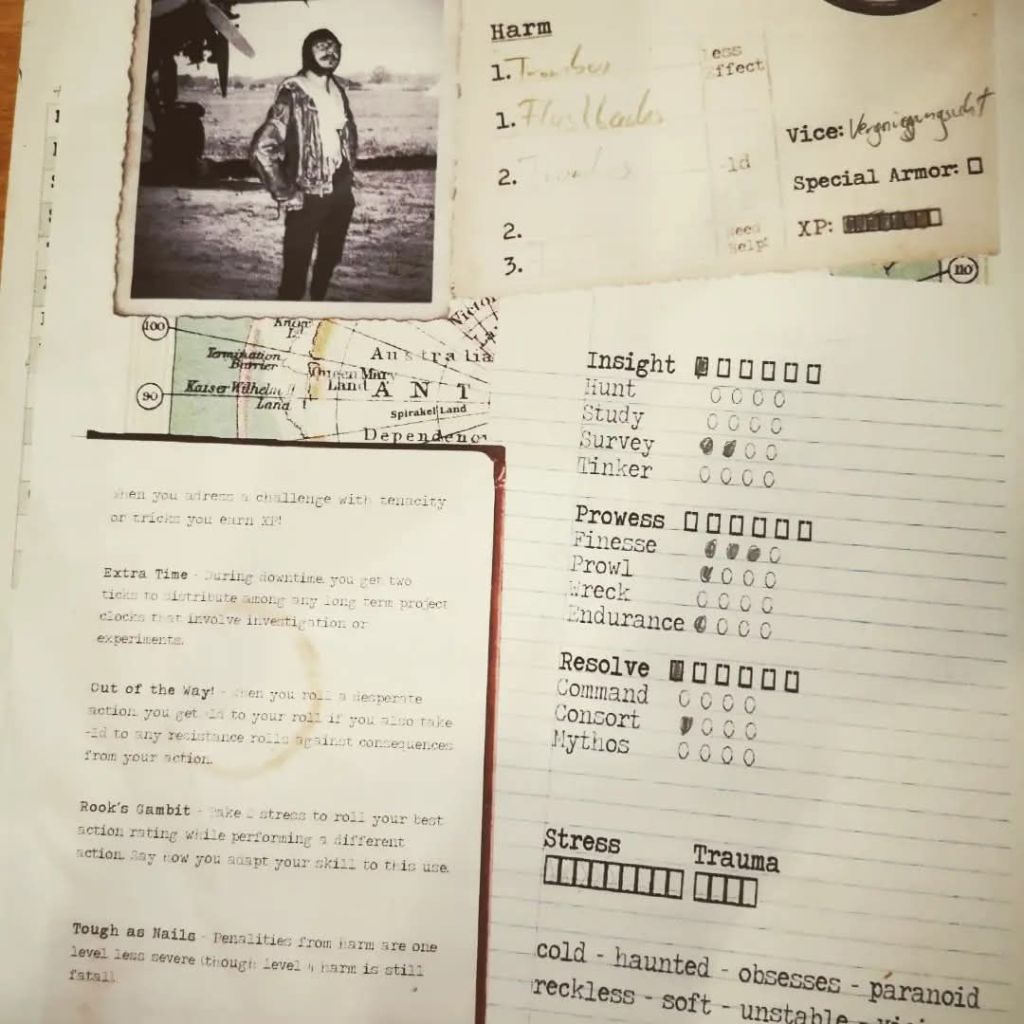 Harm
1.
1.
2.
-1d
2.
3.
Vice: Vergnügungssucht
Special Armor:
XP:
110
100
90
Australia
Termination
Barrier
Queen Mary
Land
Kaiser Wilhelm II
Land
ANT
Spirakel Land
Dependenc
When you adress a challenge with tenacity
or tricks you earn XP!
Extra Time - During downtime, you get two
ticks to distribute among any long term project
clocks that involve investigation or
experiments.
Out of the Way! - When you roll a desperate
action, you get +1d to your roll if you also take
-1d to any resistance rolls against consequences
from your action.
Rook's Gambit - Take 2 stress to roll your best
action rating while performing a different
action. Say how you adapt your skill to this use.
Tough as Nails - Penalities from harm are one
level less severe (though level 4 harm is still
fatal).
Insight
Hunt
Study
Survey
Tinker
Prowess
Finesse
Prowl
Wreck
Endurance
Resolve
Command
Consort
Mythos
Stress
Trauma
cold - haunted - obsesses - paranoid
reckless - soft - unstable -